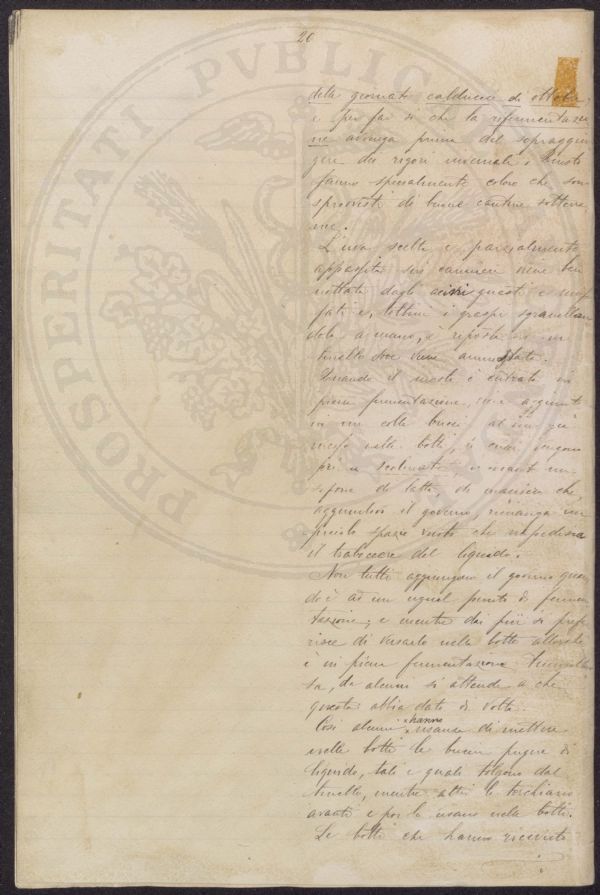 20
PROSPERITATI PVBLICAE
delle giornate calduccie di ottobre
e per far sì che la rifermentazio
ne avvenga prima del sopraggiun
gere dei rigori invernali; questo
fanno specialmente coloro che son
sprovvisti di buone cantine sotterra
nee.
L'uva scelta e parzialmente
appassita sui cannicci viene ben
nettata dagli acini guasti e muf
fati e, tolti i graspi sgranellan
dola a mano, è riposta in un
tinello dove viene ammostata.
Quando il mosto è entrato in
piena fermentazione, viene aggiunto
in un colle buccie al vino già
messo nelle botti, i cui
prima scolmate usando un
sifone di latta, di maniera che,
aggiuntovi il governo, rimanga un
piccolo spazio vuoto che impedisca
il traboccare del liquido.
Non tutti aggiungono il governo quan
do è ad un egual punto di fermen
tazione; e mentre dai più si prefe
risce di versarlo nelle botti allorchè
è in piena fermentazione tumultuo
sa, da alcuni si attende a che
questa abbia dato di volta.
Così alcuni hanno usanza di mettere
nelle botti le buccie pregne di
liquido, tali e quali tolgono dal
tinello, mentre altri le torchiano
avanti e poi le usano nelle botti.
Le botti che hanno ricevuto